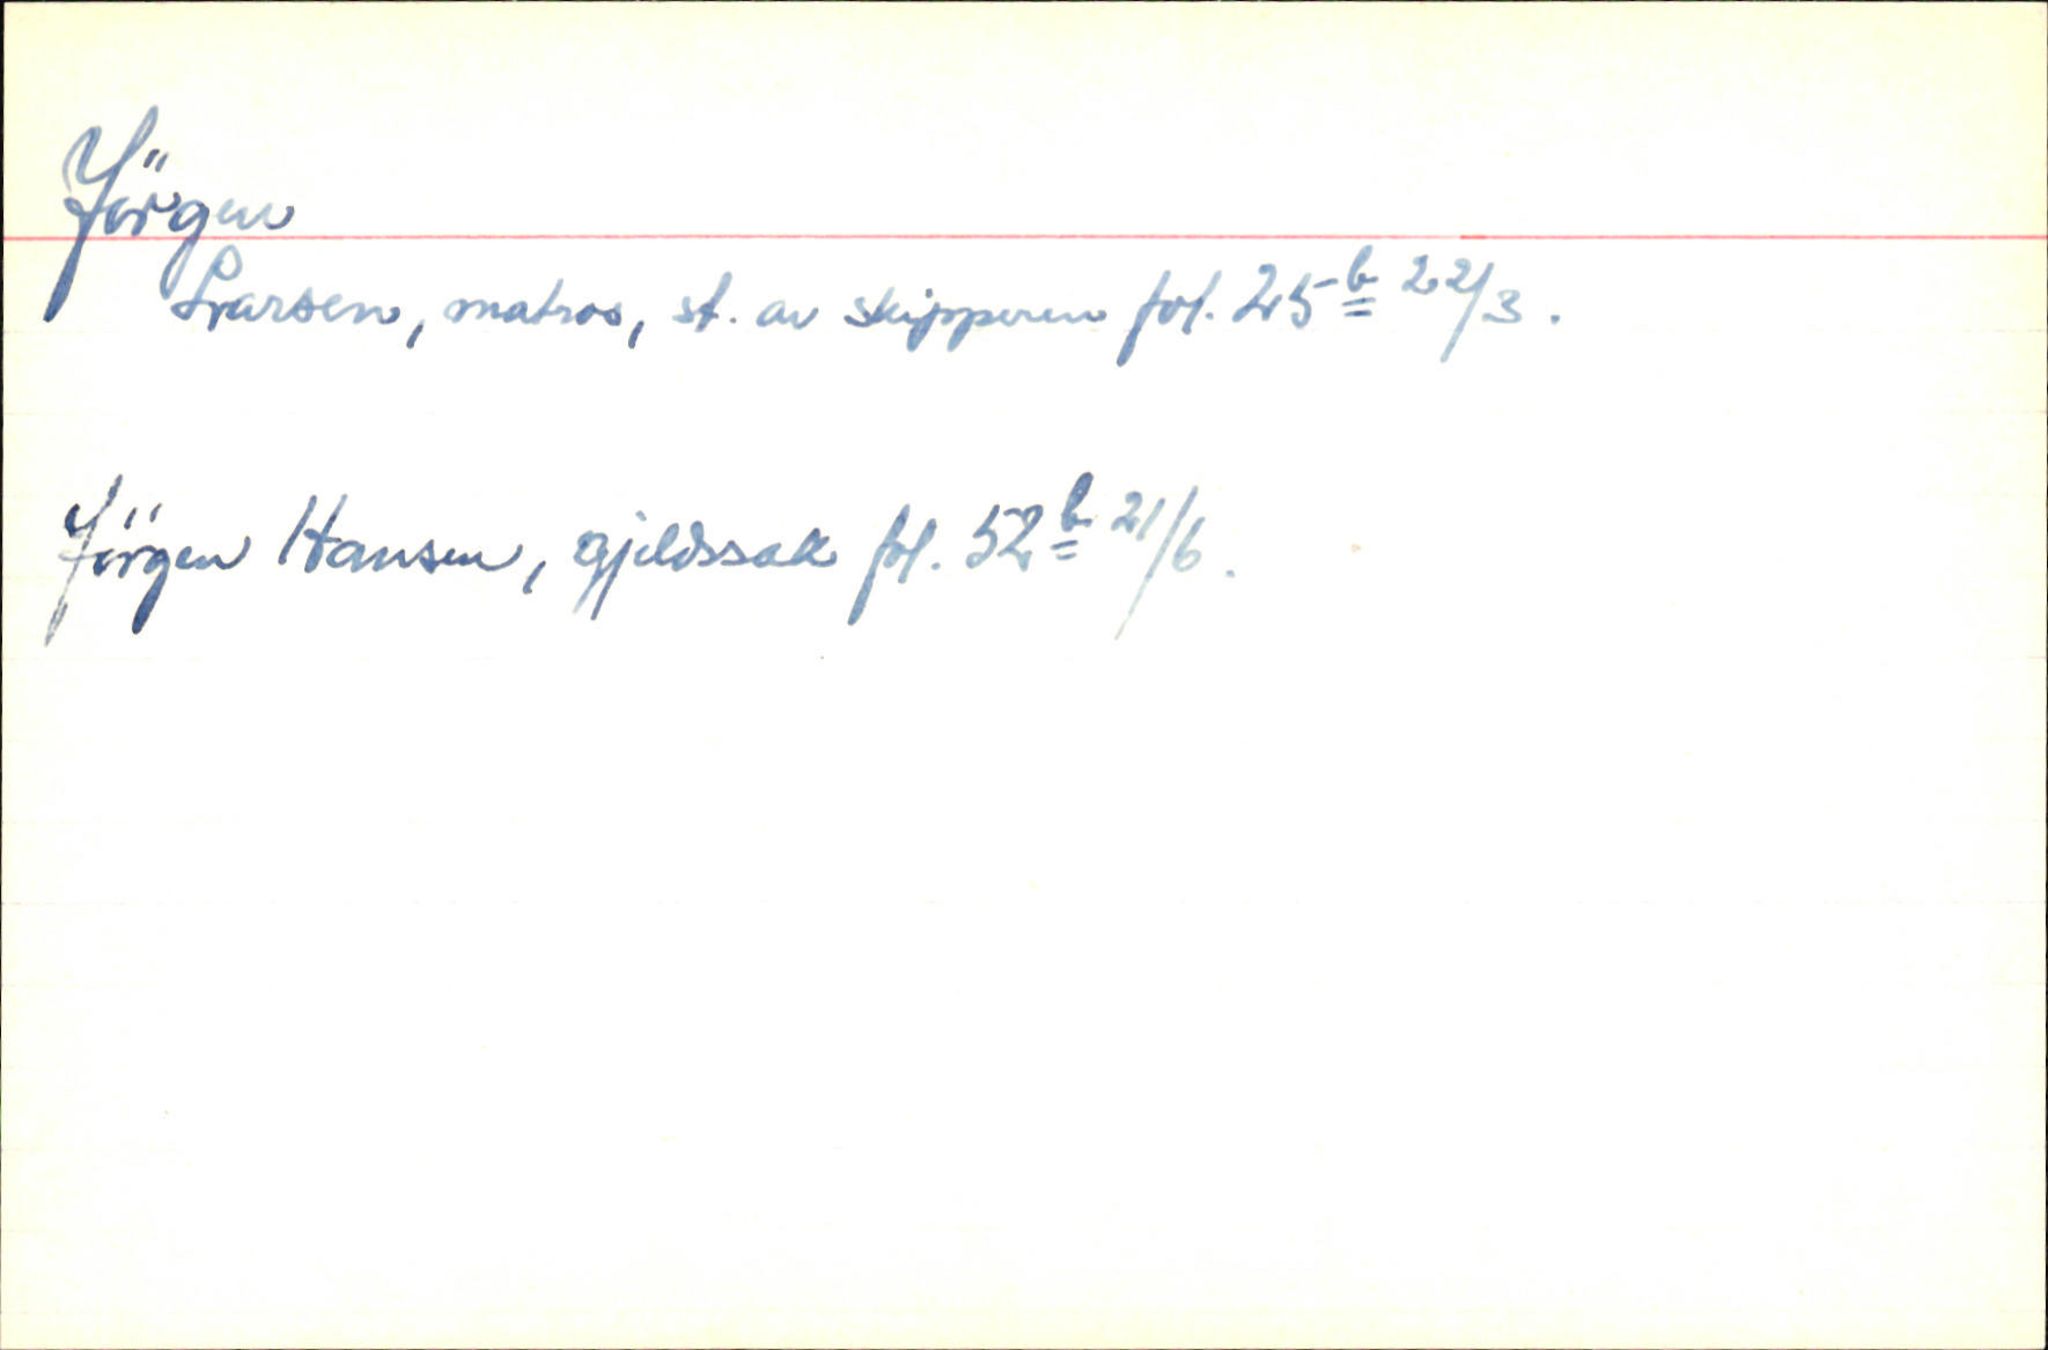 Jörgen
Larsen, matros, st. av skipperen fol. 25b 22/3.
Jörgen Hansen, gjeldssak fol. 52b 21/6.